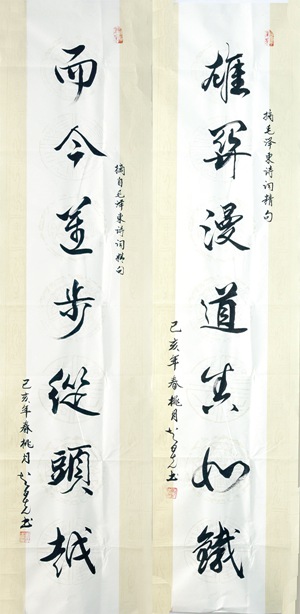 雄關漫道真如鐵
摘毛泽东诗词精句
己亥年春桃月
而今邁步從頭越
摘自毛泽东诗词妙句
己亥年春桃月